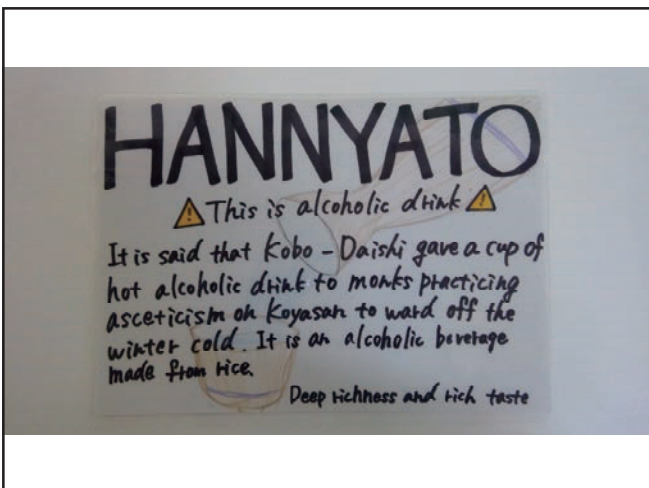 HANNYATO
⚠This is alcoholic drink⚠
It is said that Kobo-Daishi gave a cup of
hot alcoholic drink to monks practicing
asceticism on Koyasan to ward off the
winter cold. It is an alcoholic beverage
made from rice.
Deep richness and rich taste